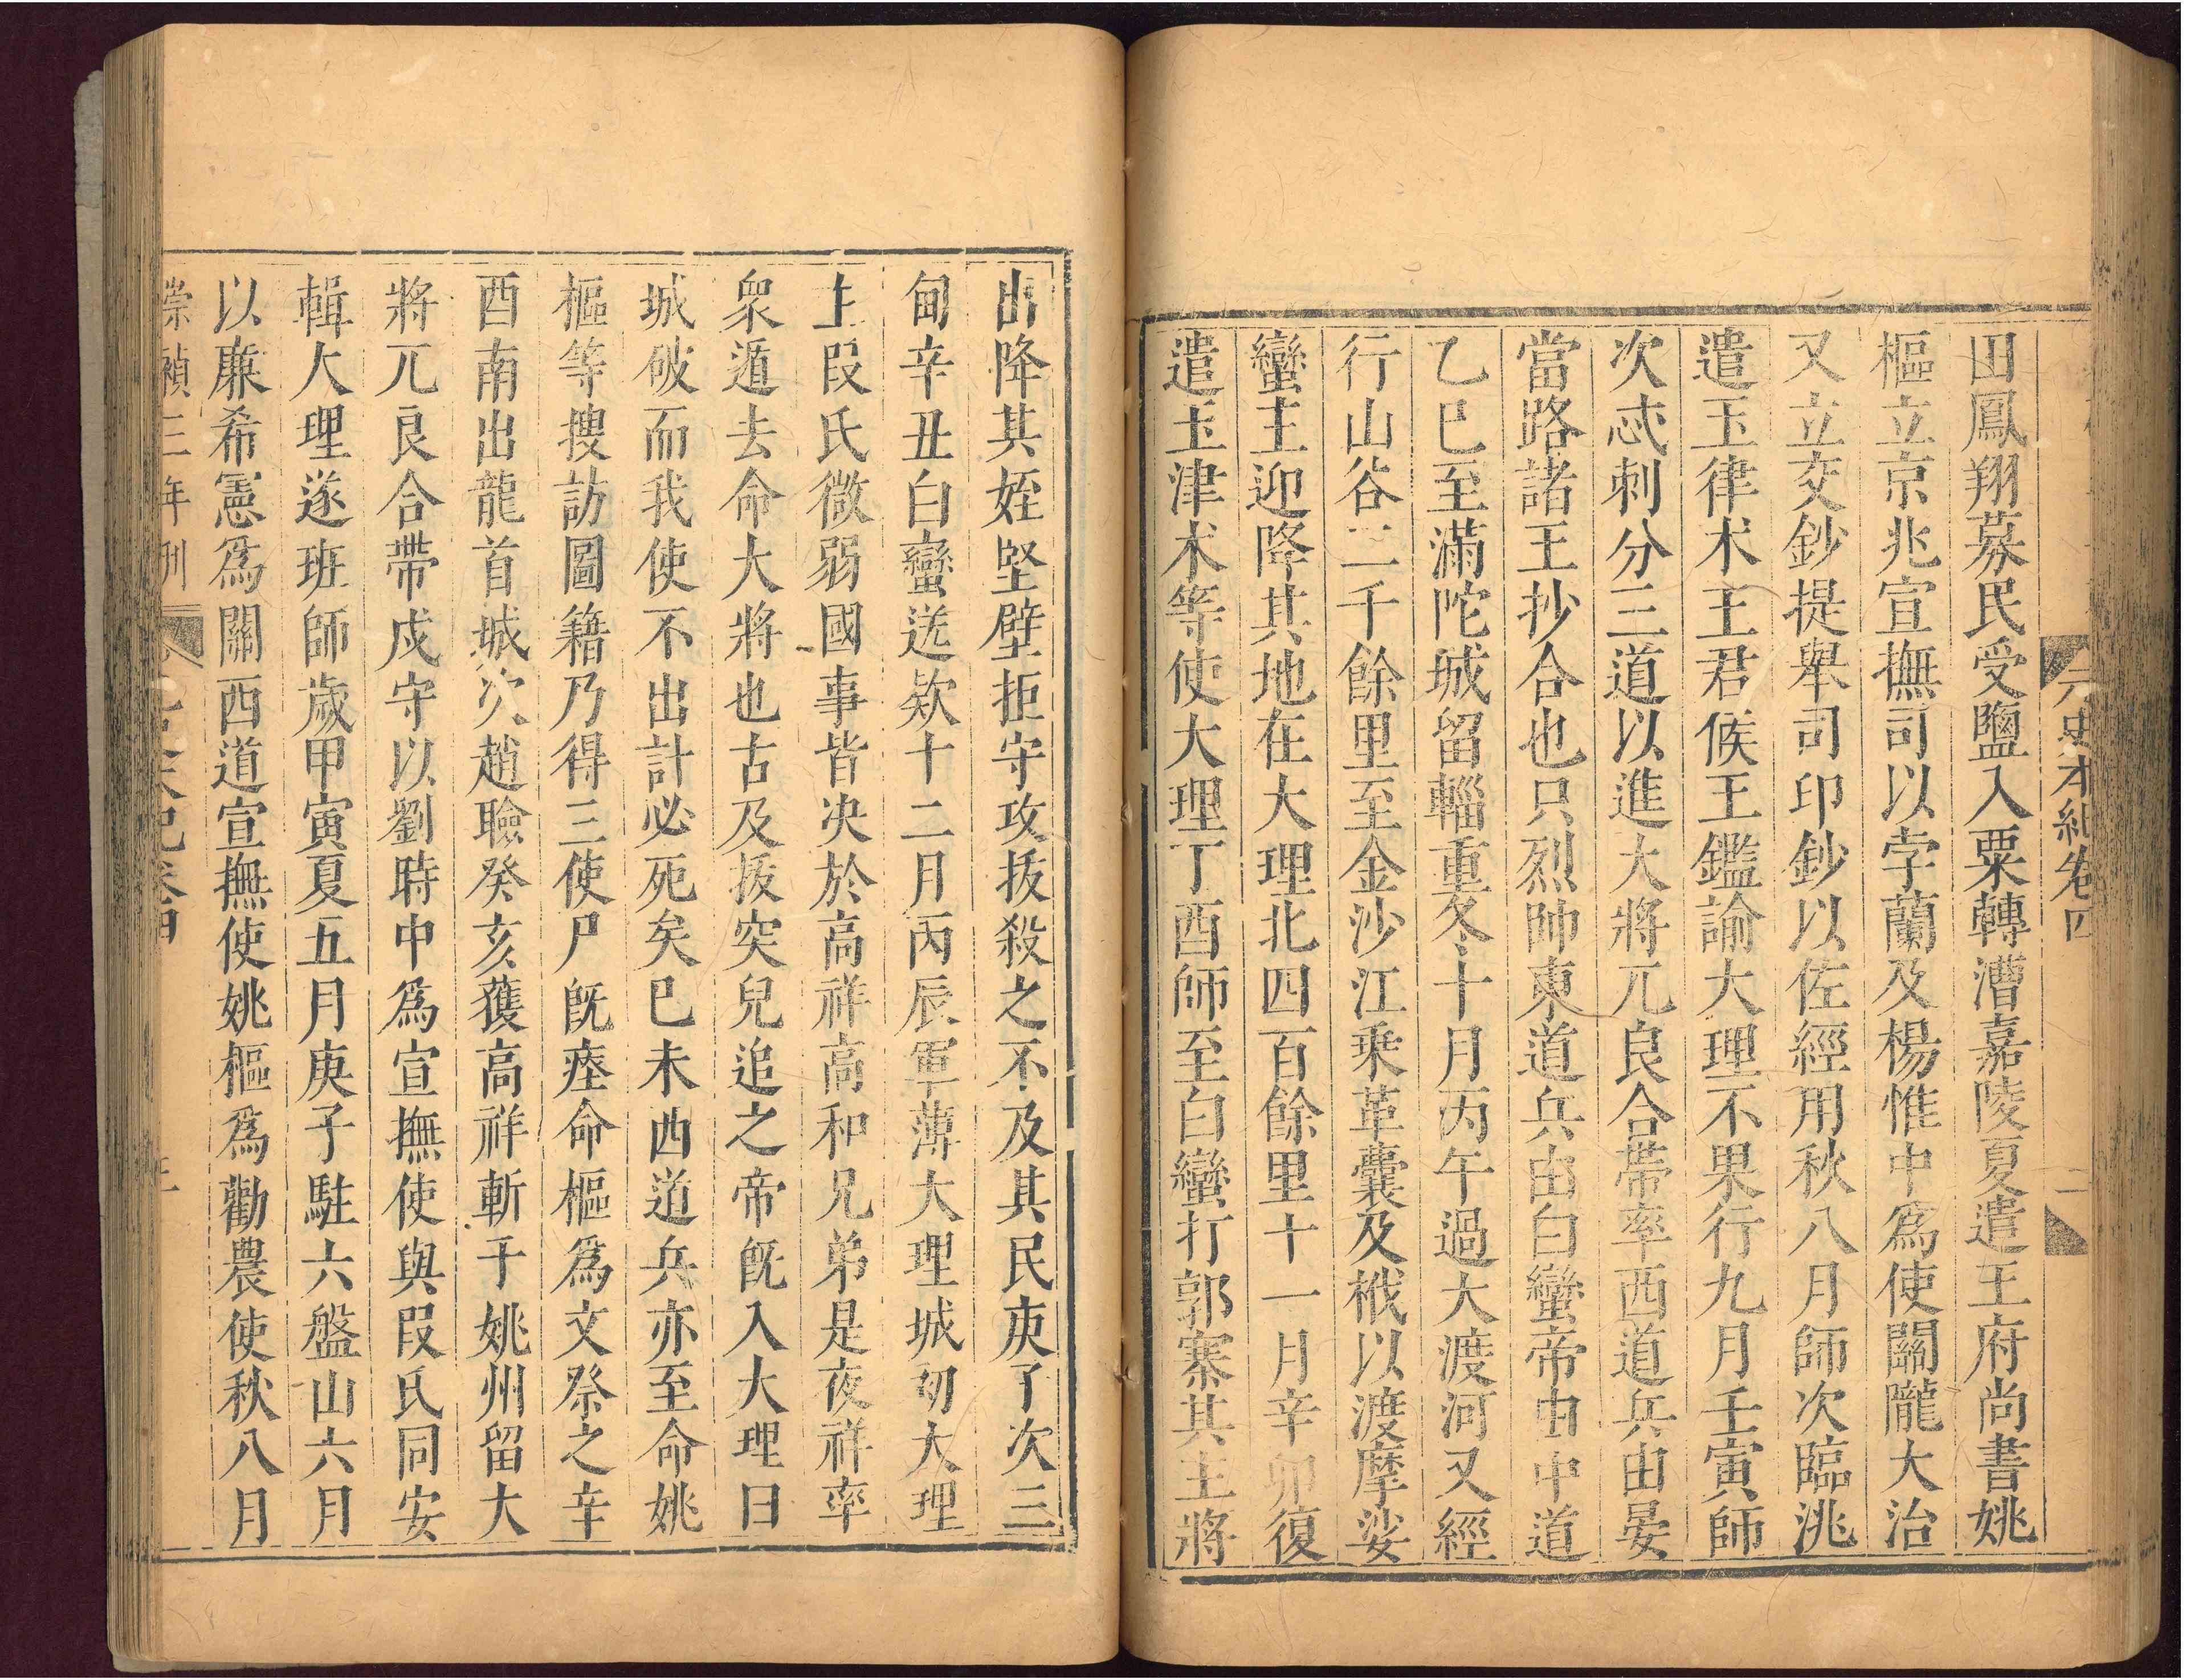 元史本紀卷四 二
田鳳翔募民受鹽入粟轉漕嘉陵夏遣王府尚書姚
樞立京兆宣撫司以孛蘭及楊惟中爲使關隴大治
又立交鈔提舉司印鈔以佐經用秋八月師次臨洮
遣玉律术王君候王鑑諭大理不果行九月壬寅師
次忒剌分三道以進大將兀良合帶率西道兵由晏
當路諸王抄合也只烈帥東道兵由白蠻帝由中道
乙巳至滿陀城留輜重冬十月丙午過大渡河又經
行山谷二千餘里至金沙江乘革囊及栰以渡摩娑
蠻主迎降其地在大理北四百餘里十一月辛卯復
遣玉津术等使大理丁酉師至白蠻打郭寨其主將
出降其姪堅壁拒守攻拔殺之不及其民庚子次三
甸辛丑白蠻送欵十二月丙辰軍薄大理城初大理
主叚氏微弱國事皆决於高祥高和兄弟是夜祥率
衆遁去命大將也古及拔突兒追之帝旣入大理曰
城破而我使不出計必死矣巳未西道兵亦至命姚
樞等搜訪圖籍乃得三使尸旣瘞命樞爲文祭之辛
酉南出龍首城次趙瞼癸亥獲高祥斬于姚州留大
將兀良合帶戍守以劉時中爲宣撫使與叚氏同安
輯大理遂班師歲甲寅夏五月庚子駐六盤山六月
以廉希憲爲關西道宣撫使姚樞爲勸農使秋八月
崇禎三年刊